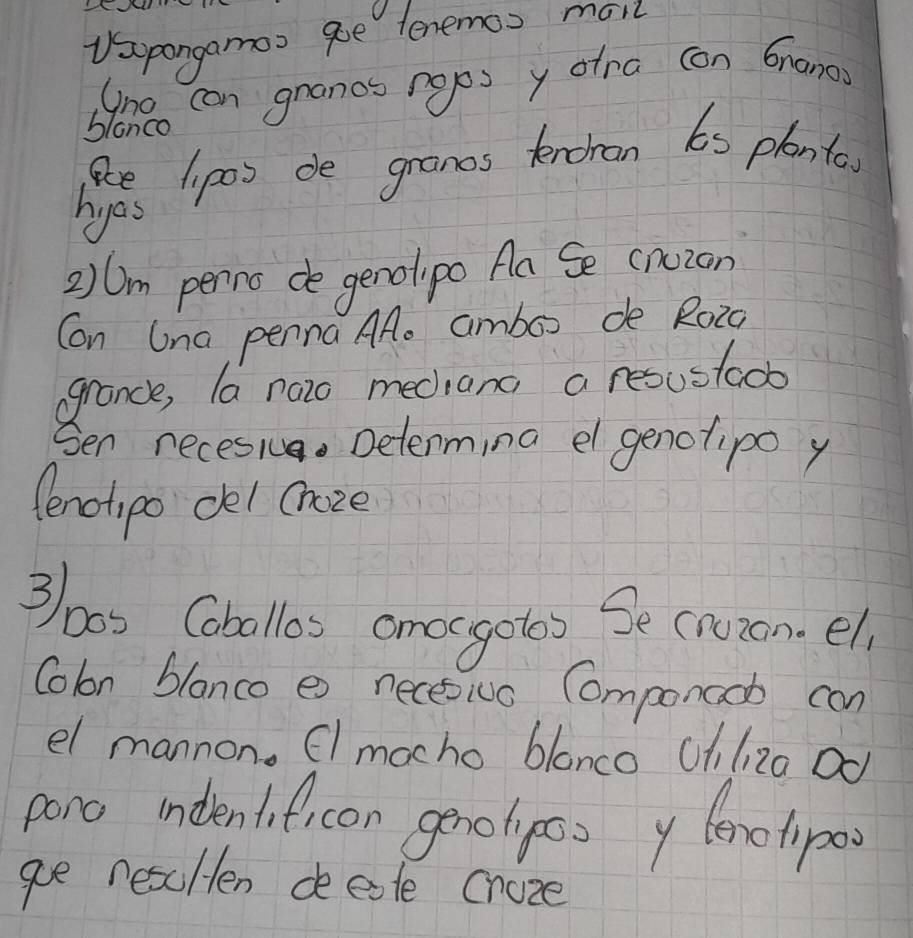 1) Supongamos que tenemos maiz
Uno con granos rojos y otra con Granos
blanco
Que tipos de granos tendran las plantas
hijas
2) Um perro de genotipo Aa Se cruzan
Con Una perra AA. ambos de Raza
grande, la raza mediana a resustado
Ser recesiva. Determina el genotipo y
fenotipo del Cruze
3) Dos Caballos omocigotos Se cruzan. el,
Color blanco es recesivo Comparado con
el marron. El macho blanco Utiliza Dd
para indentificar genotipos y fenotipos
que resulten de este cruze